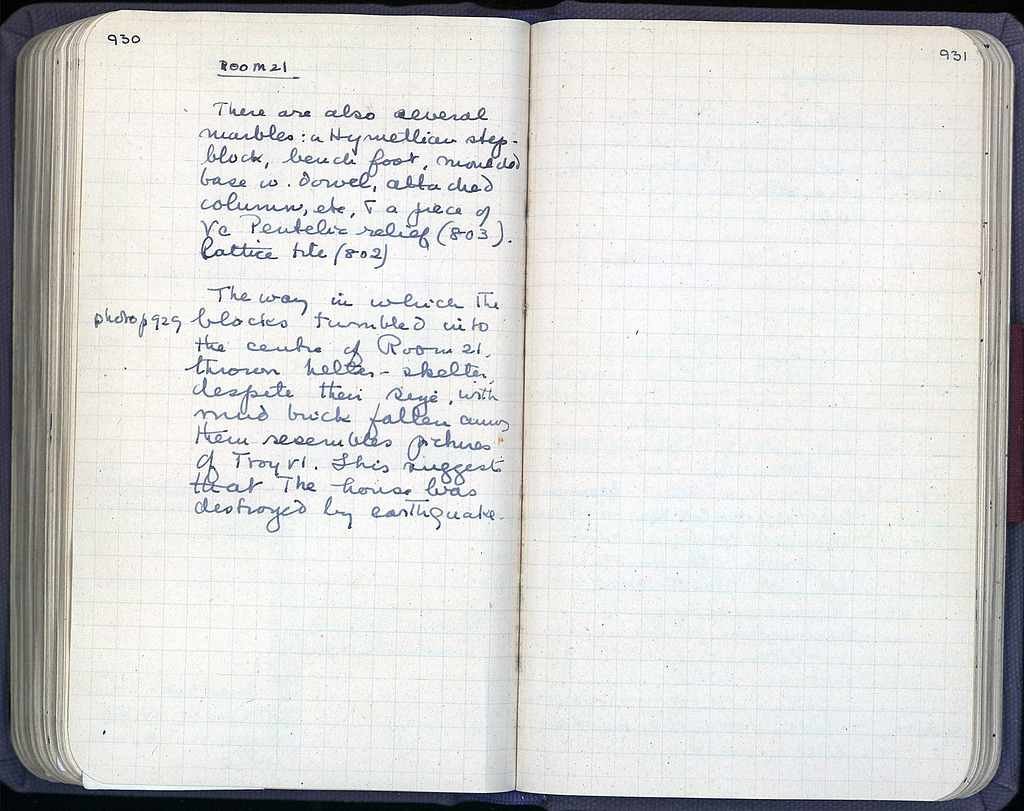 930
931
Room 21
There are also several
marbles: a Hymettian step-
block, bench foot, moulded
base w. dowel, attached
column, etc, & a piece of
Vc Pentelic relief (803).
Lattice tile (802)
The way in which the
photo p929 blocks tumbled into
the centre of Room 21,
thrown helter-skelter,
despite their size, with
mud brick fallen among
them resembles pictures
of Troy VI. This suggests
that the house was
destroyed by earthquake.